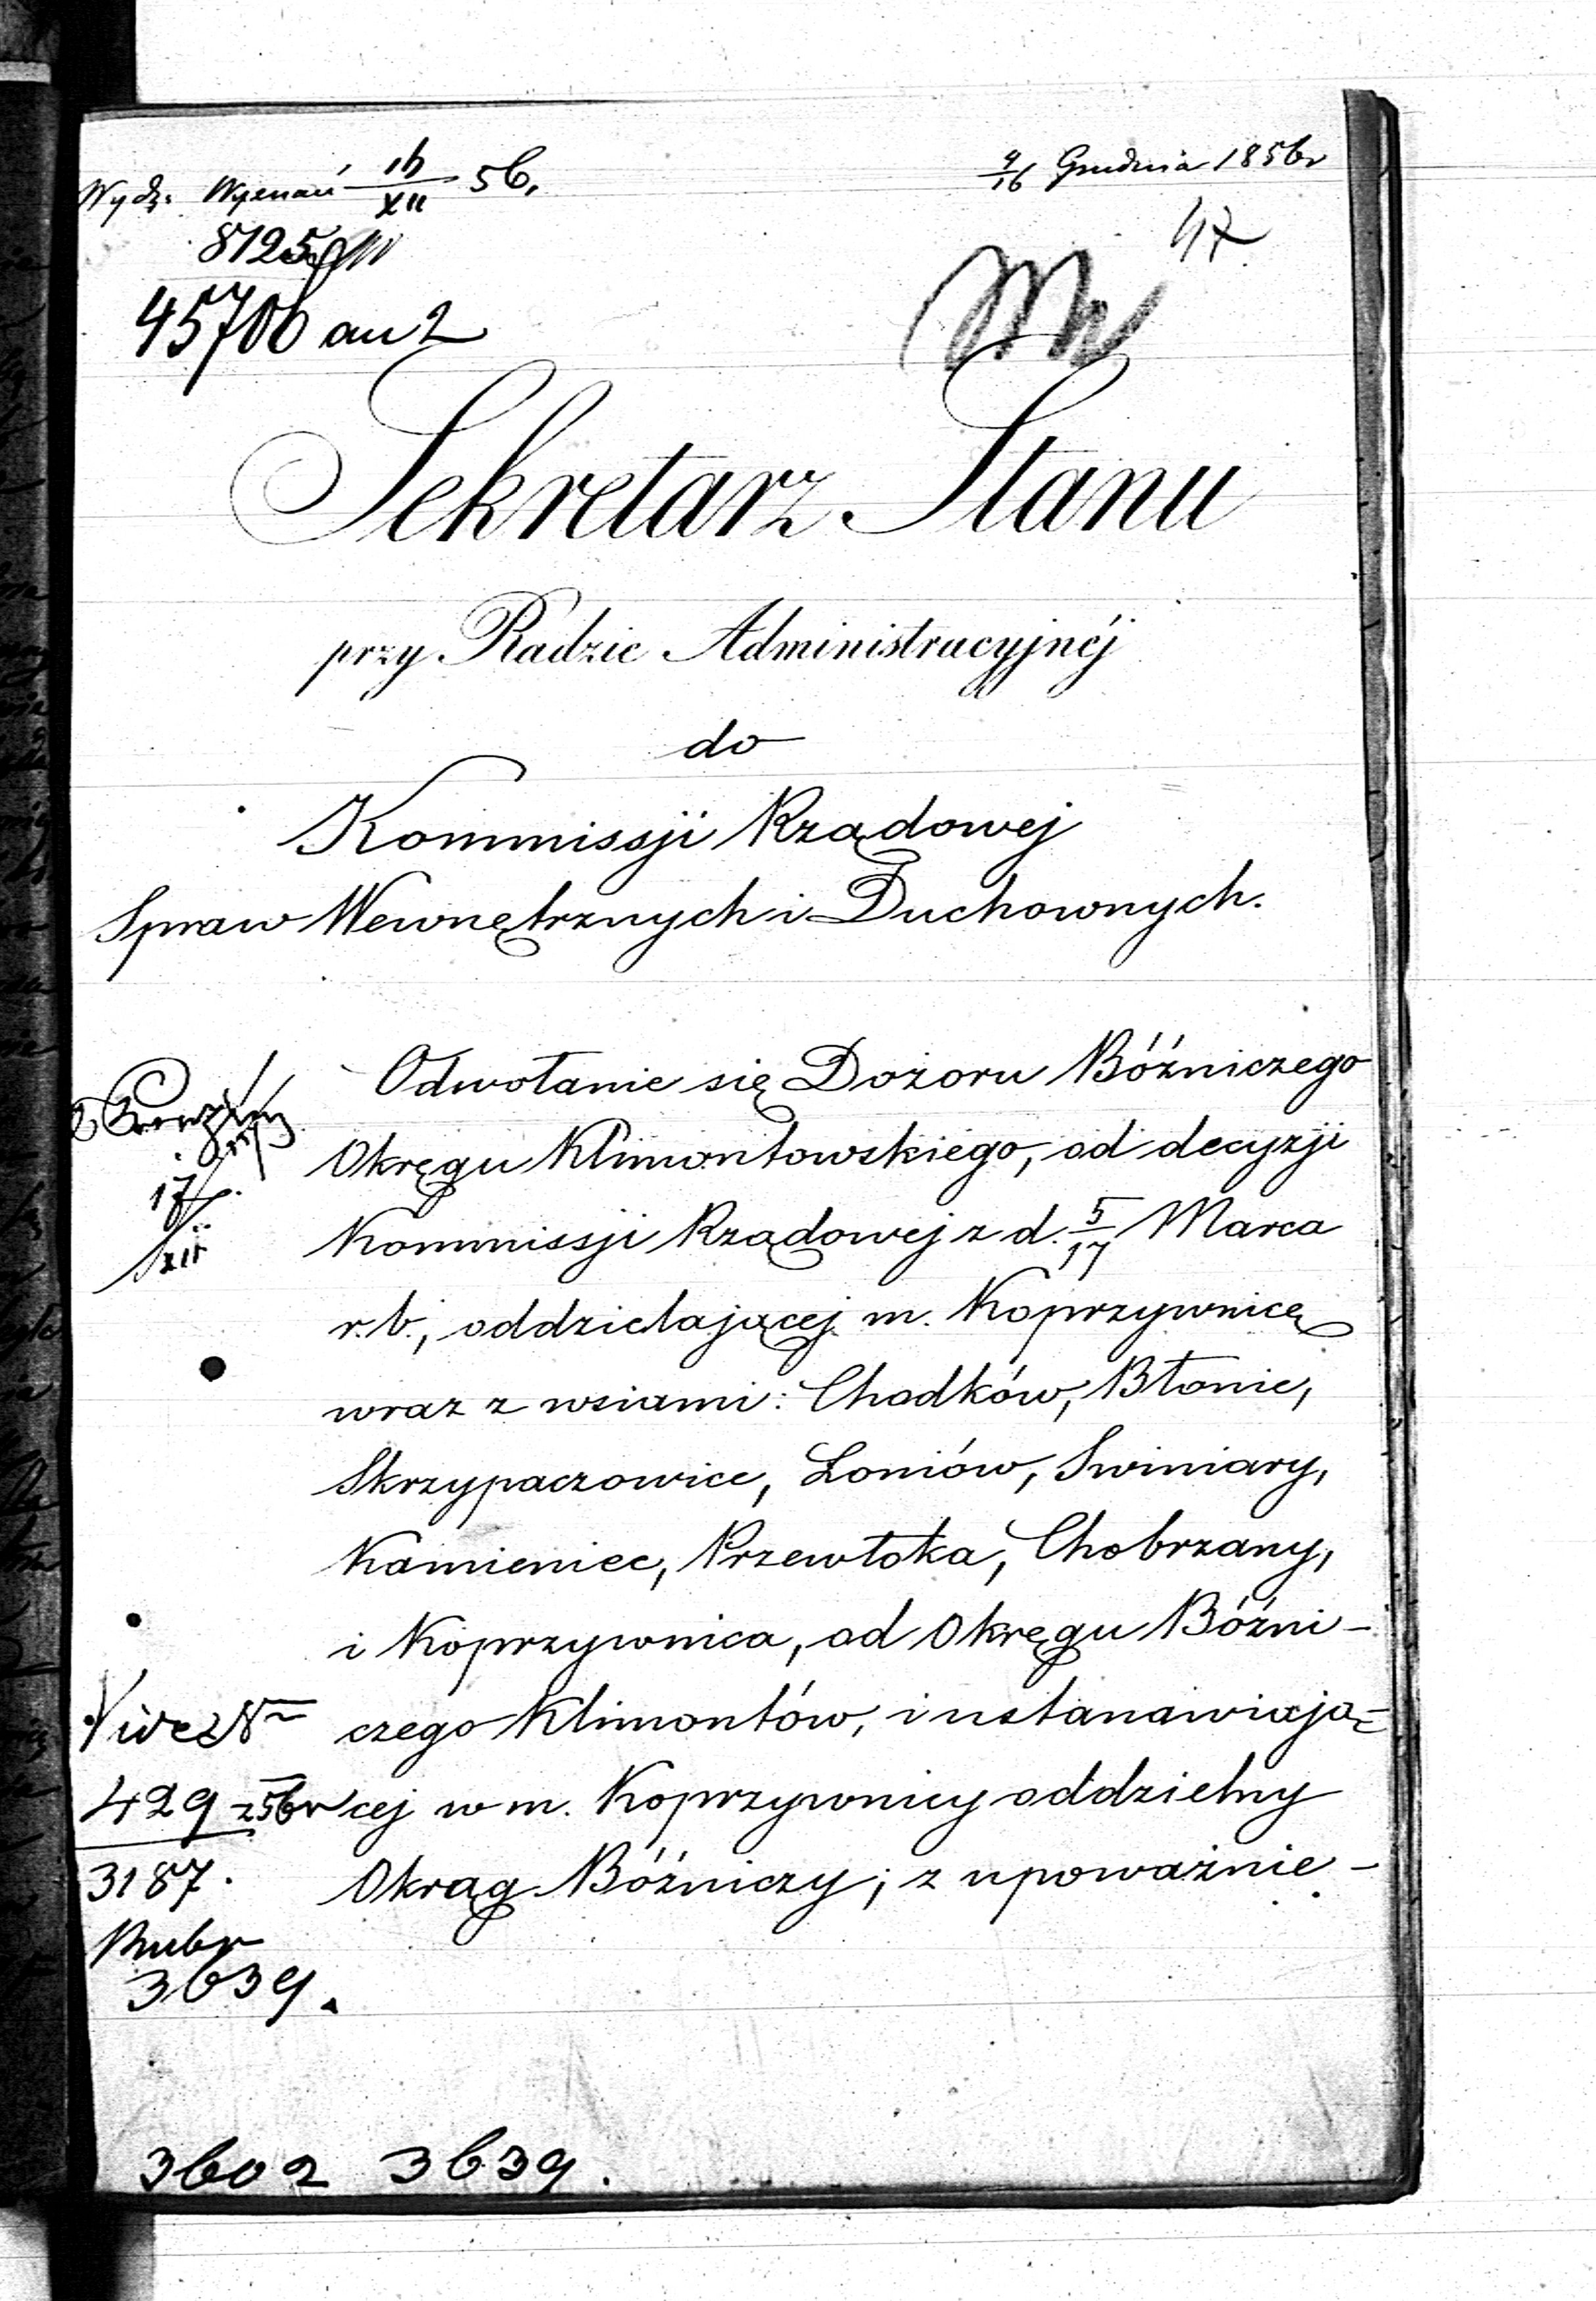 Wydz. Wyznań 16/XII 56.
4/16 Grudnia 1856 r
8125
47
45706 an 2
Sekretarz Stanu
przy Radzie Administracyjnéj
do
Kommissji Rządowej
Spraw Wewnętrznych i Duchownych.
Odwołanie się Dozoru Bóźniczego
Okręgu Klimontowskiego, od decyzji
Kommissji Rządowej z d. 5/17 Marca
r. b., oddzielającej m. Koprzywnicę
wraz z wsiami: Chodków, Błonie,
Skrzypaczowice, Łoniów, Swiniary,
Kamieniec, Przewłoka, Chobrzany,
i Koprzywnica, od Okręgu Bóźni-
czego Klimontów, i ustanawiają-
cej w m. Koprzywnicy oddzielny
Okrąg Bóźniczy; z upoważnie-
17/XII
Vide N
429 z 56 r
3187.
Rubr
3639.
3602 3639.